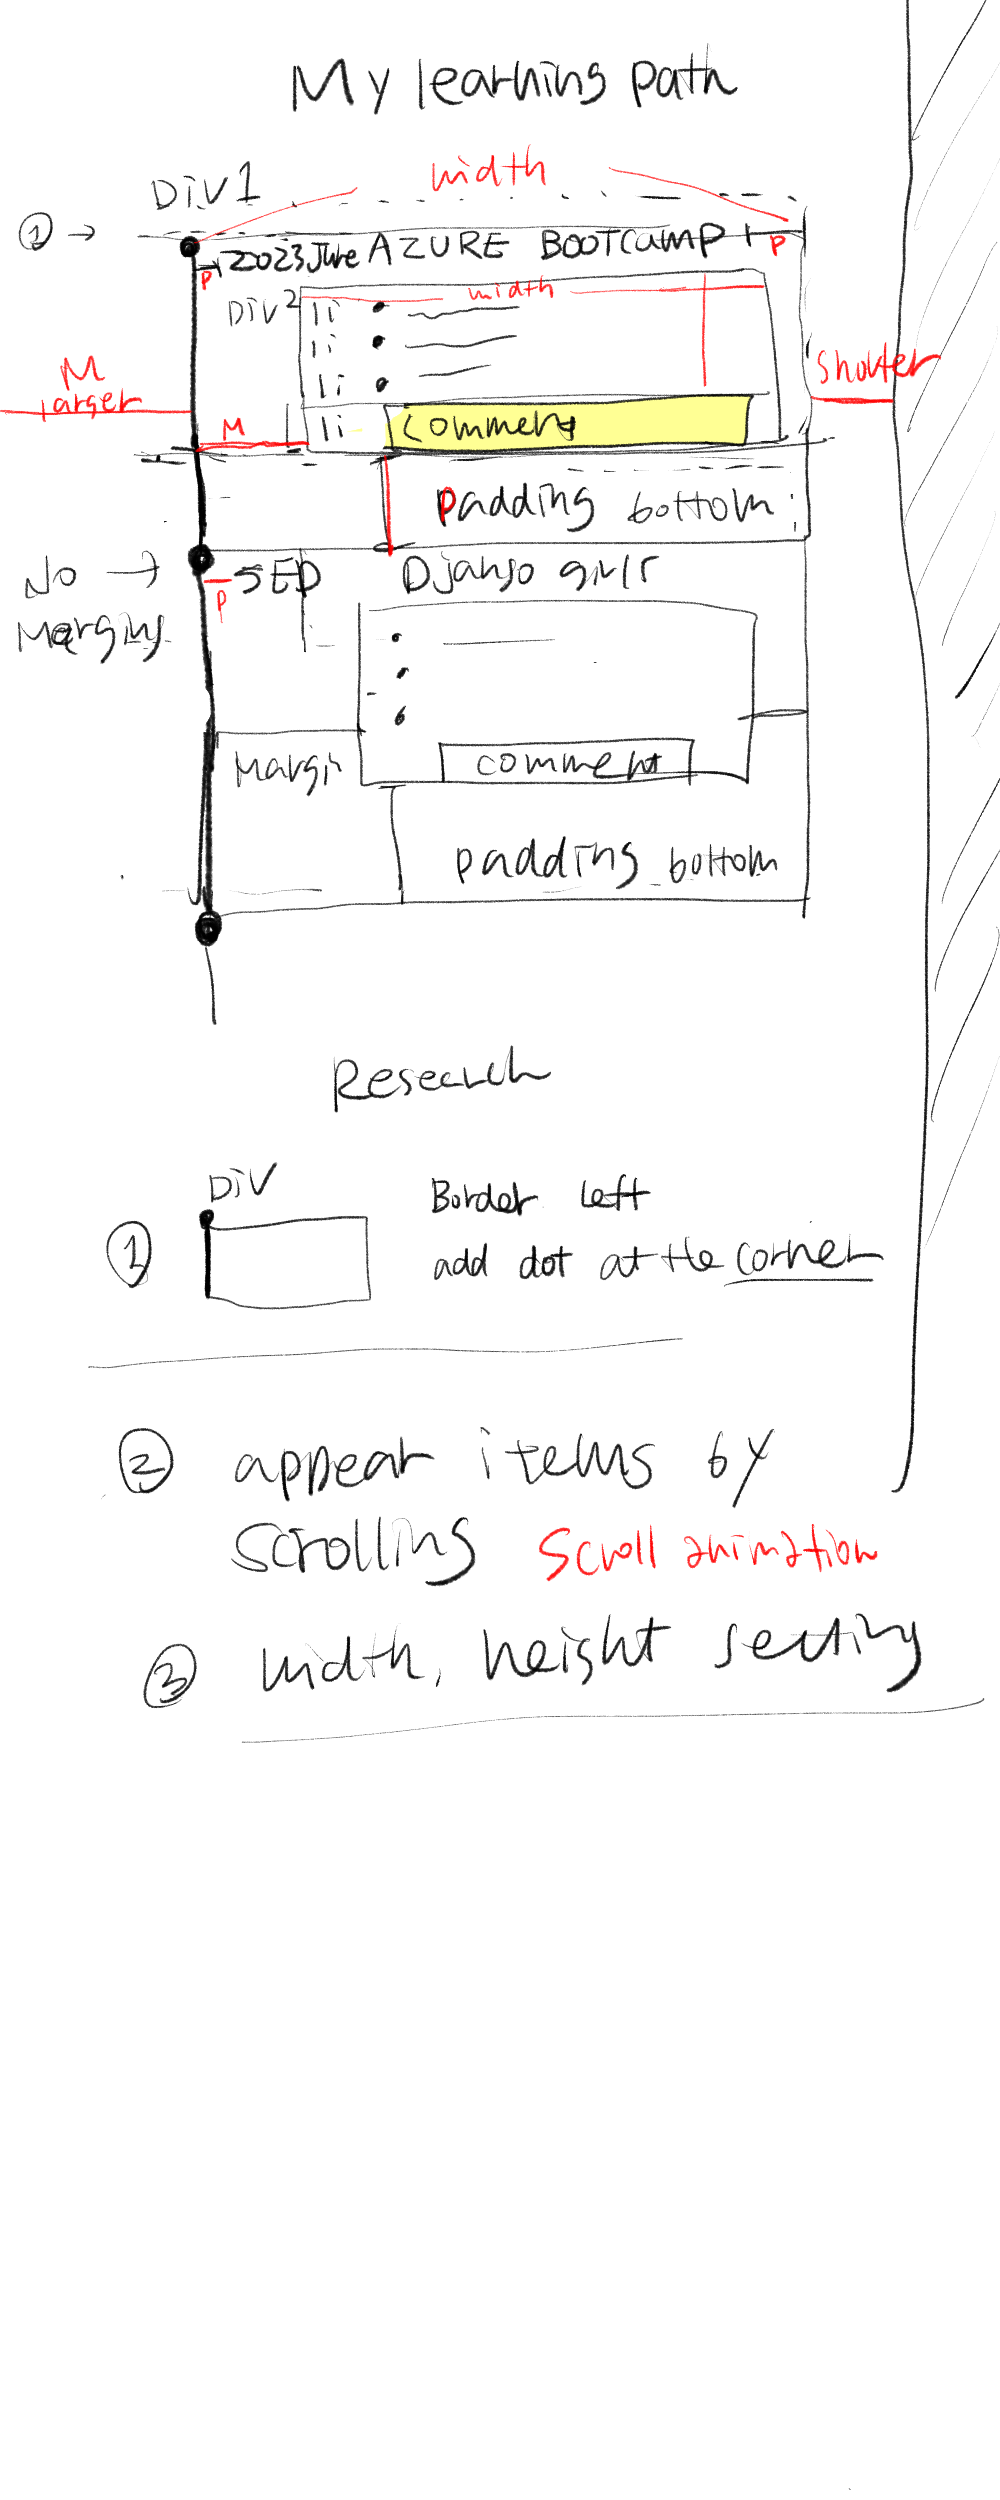 My learning path
Div 1
width
① →
2023 June AZURE BOOTCAMP
P
P
Div 2
width
li
li
li
li
comment
M
larger
M
shorter
padding bottom
No →
Margins
P
SEP
Django girls
comment
Margin
padding bottom
Research
DiV
① Border left
add dot at the corner
② appear items by
scrolling scroll animation
③ width, height setting